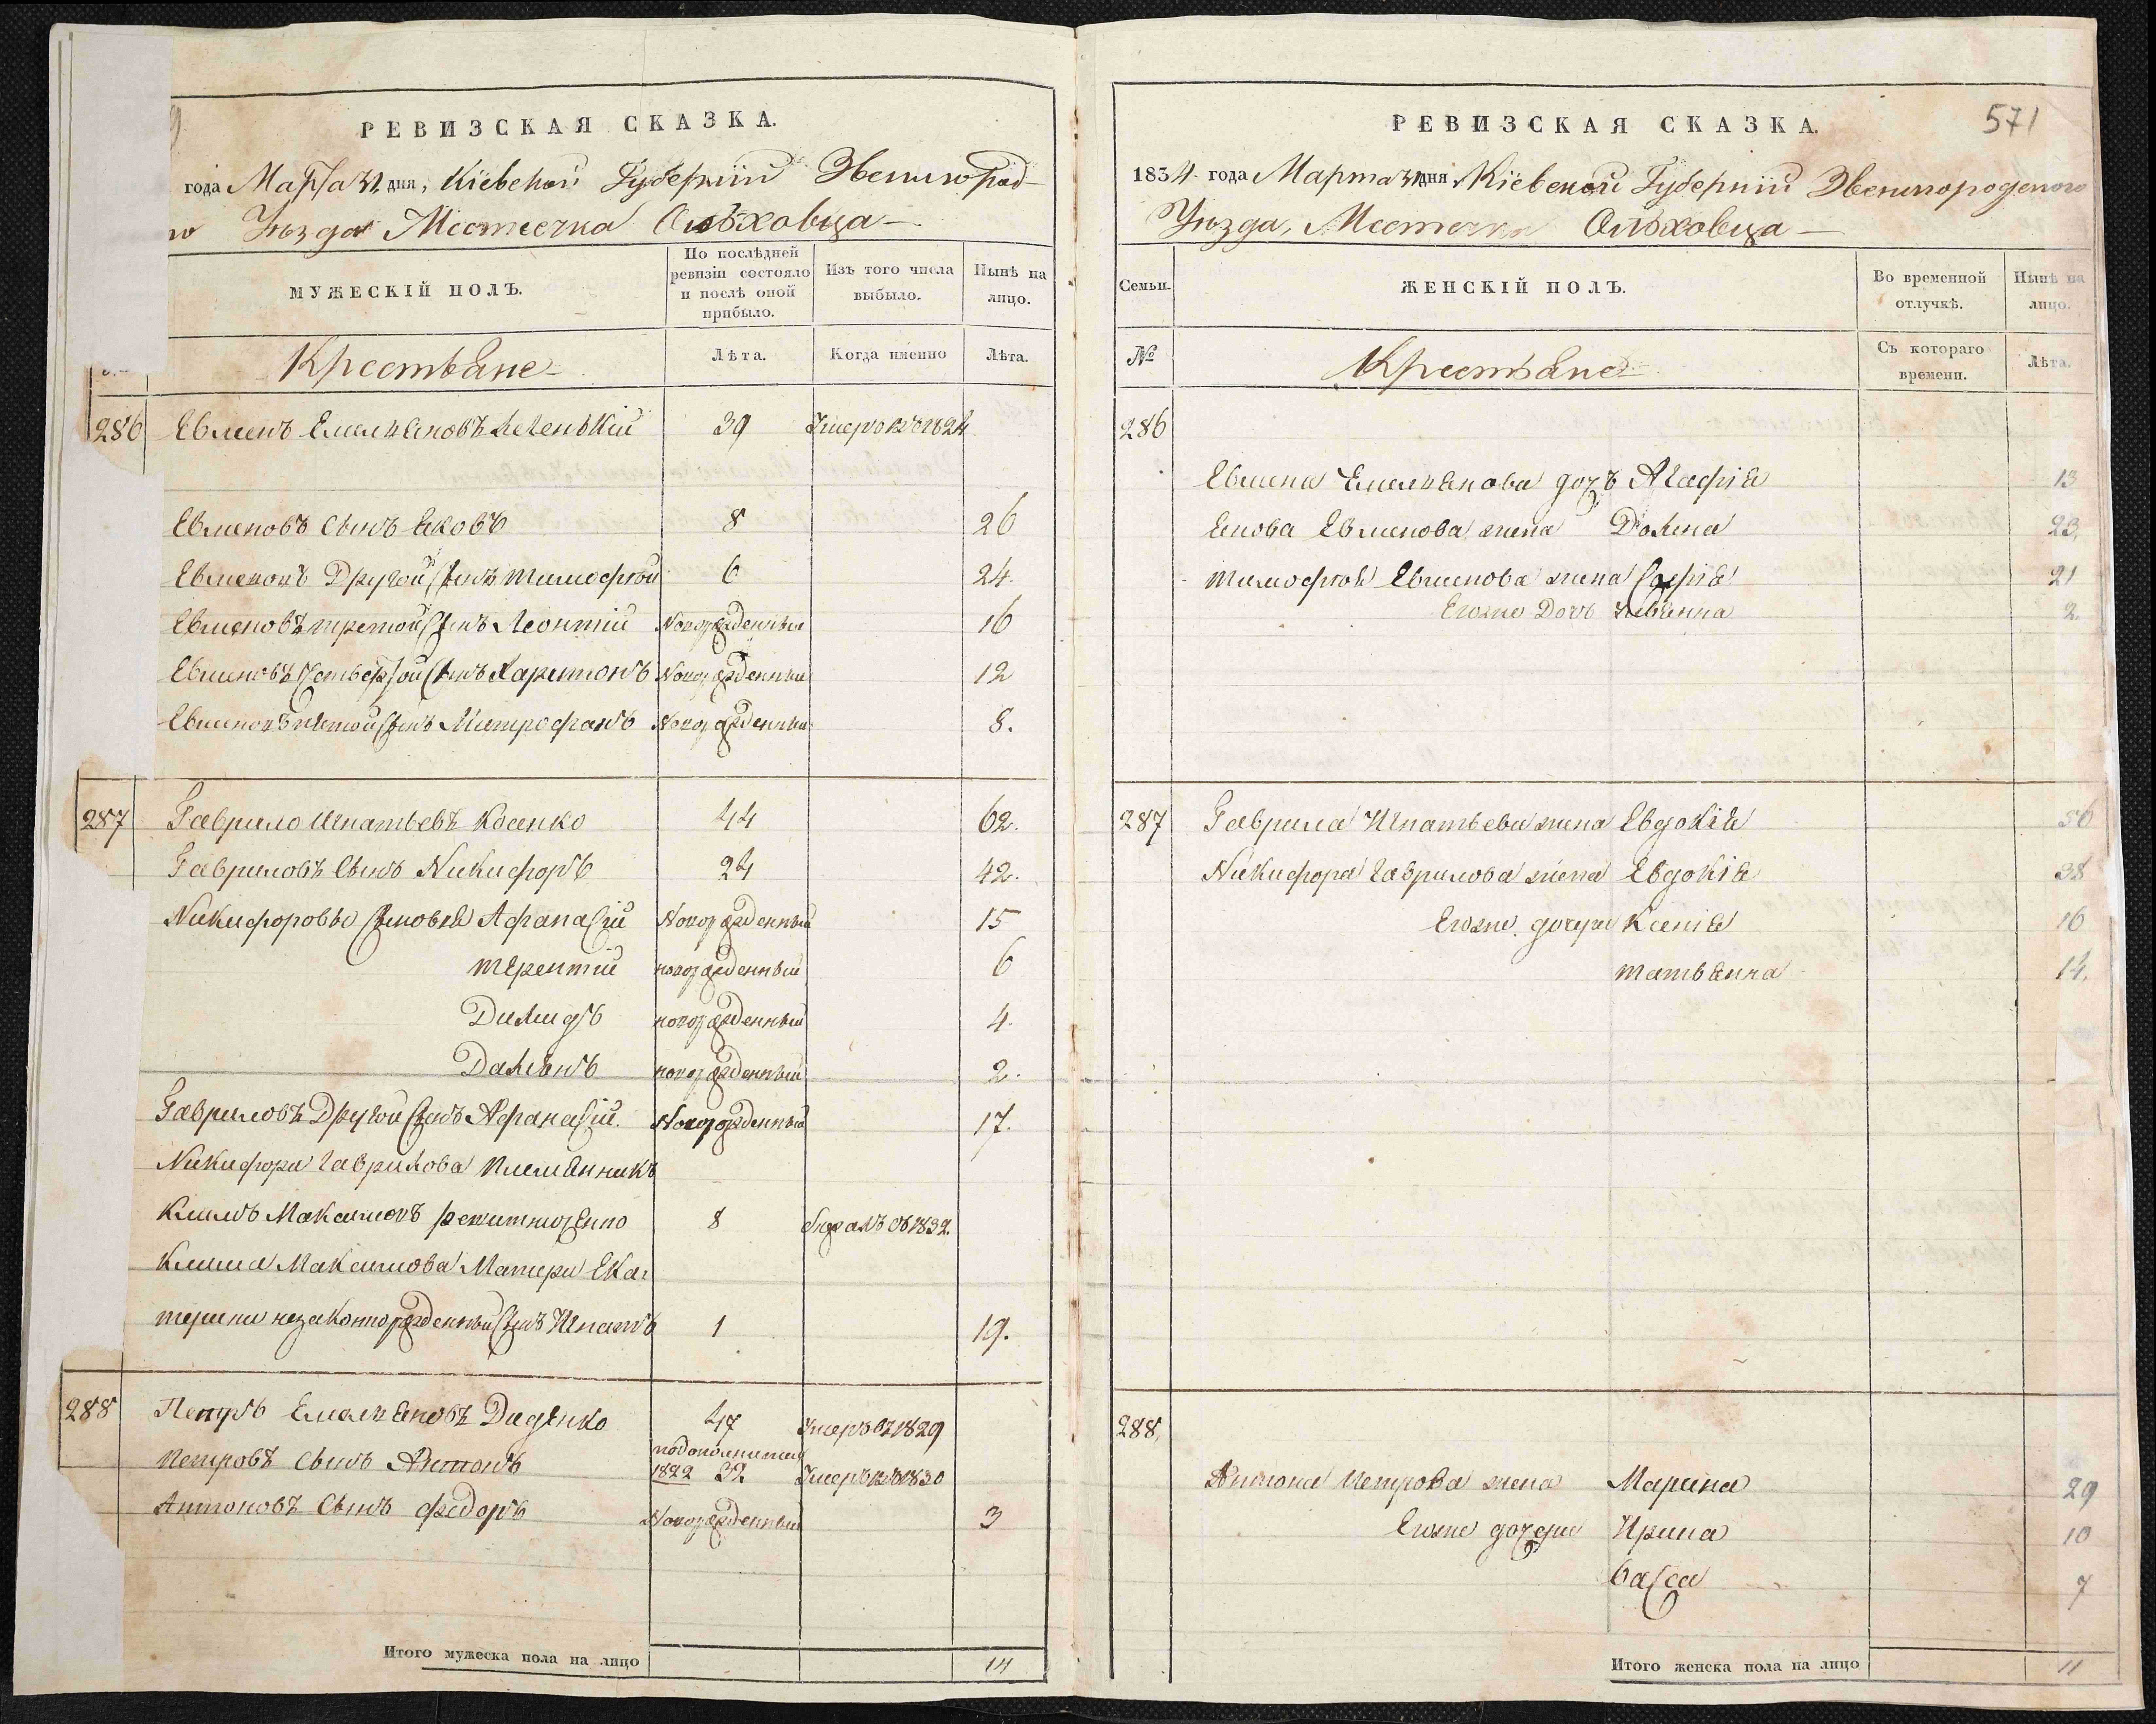 РЕВИЗСКАЯ СКАЗКА.
года Марта 31 дня, Кіевской Губерніи Звенигород-
го Уѣзда Местечка Ольховца
МУЖЕСКІЙ ПОЛЪ.
По послѣдней ревизіи состояло и послѣ оной прибыло.
Изъ того числа выбыло.
Нынѣ на лицо.
Крестьяне
Лѣта.
Когда именно
Лѣта.
286 Евменъ Емельяновъ 39 Умеръ въ 1824
Евменовъ сынъ Яковъ 8 26
Евменовъ Другой сынъ Тимофѣй 6 24.
Евменовъ третой сынъ Леонтій Новорожденный 16
Евменовъ Четвертой сынъ Харитонъ Новорожденный 12
Евменовъ пятой сынъ Митрофанъ Новорожденный 8.
287 Гаврило Игнатьевъ Косенко 44 62.
Гавриловъ сынъ Никифоръ 24 42.
Никифоровы сыновья Афанасій Новорожденный 15
терентій новорожденный 6
новорожденный 4.
новорожденный 2.
Гавриловъ Другой сынъ Афанасій. Новорожденный 17.
Никифора гаврилова племянникъ
Климъ Максимовъ 8 въ 1832.
Клима Максимова Матери Ека-
терины незаконнорожденный сынъ Игнатъ 1 19.
288 Петръ Емельяновъ Диденко 47 Умеръ въ 1829
Петровъ сынъ Антонъ 1822 Умеръ въ 1830
Антоновъ Сынъ федоръ Новорожденный 3
Итого мужеска пола на лицо 14
571
РЕВИЗСКАЯ СКАЗКА.
1834 года Марта 31 дня Кіевской Губерніи Звенигородского
Уѣзда, Местечка Ольховца
Семьи.
ЖЕНСКІЙ ПОЛЪ.
Во временной отлучкѣ.
Нынѣ на лицо.
№
Крестьяне
Съ котораго времени.
Лѣта.
286
Евмена Емельянова дочь Агафія 13
Якова Евменова жена Домна 23.
тимофѣя Евменова жена Софія 21
Егоже Дочь 2.
287 Гаврила Игнатьева жена Евдокія 56
Никифора гаврилова жена Евдокія 38
Егоже дочери Ксенія 16
татьянна 14.
288.
Антона Петрова жена Марина 29
Егоже дочери Ирина 10
Васса 7
Итого женска пола на лицо 11